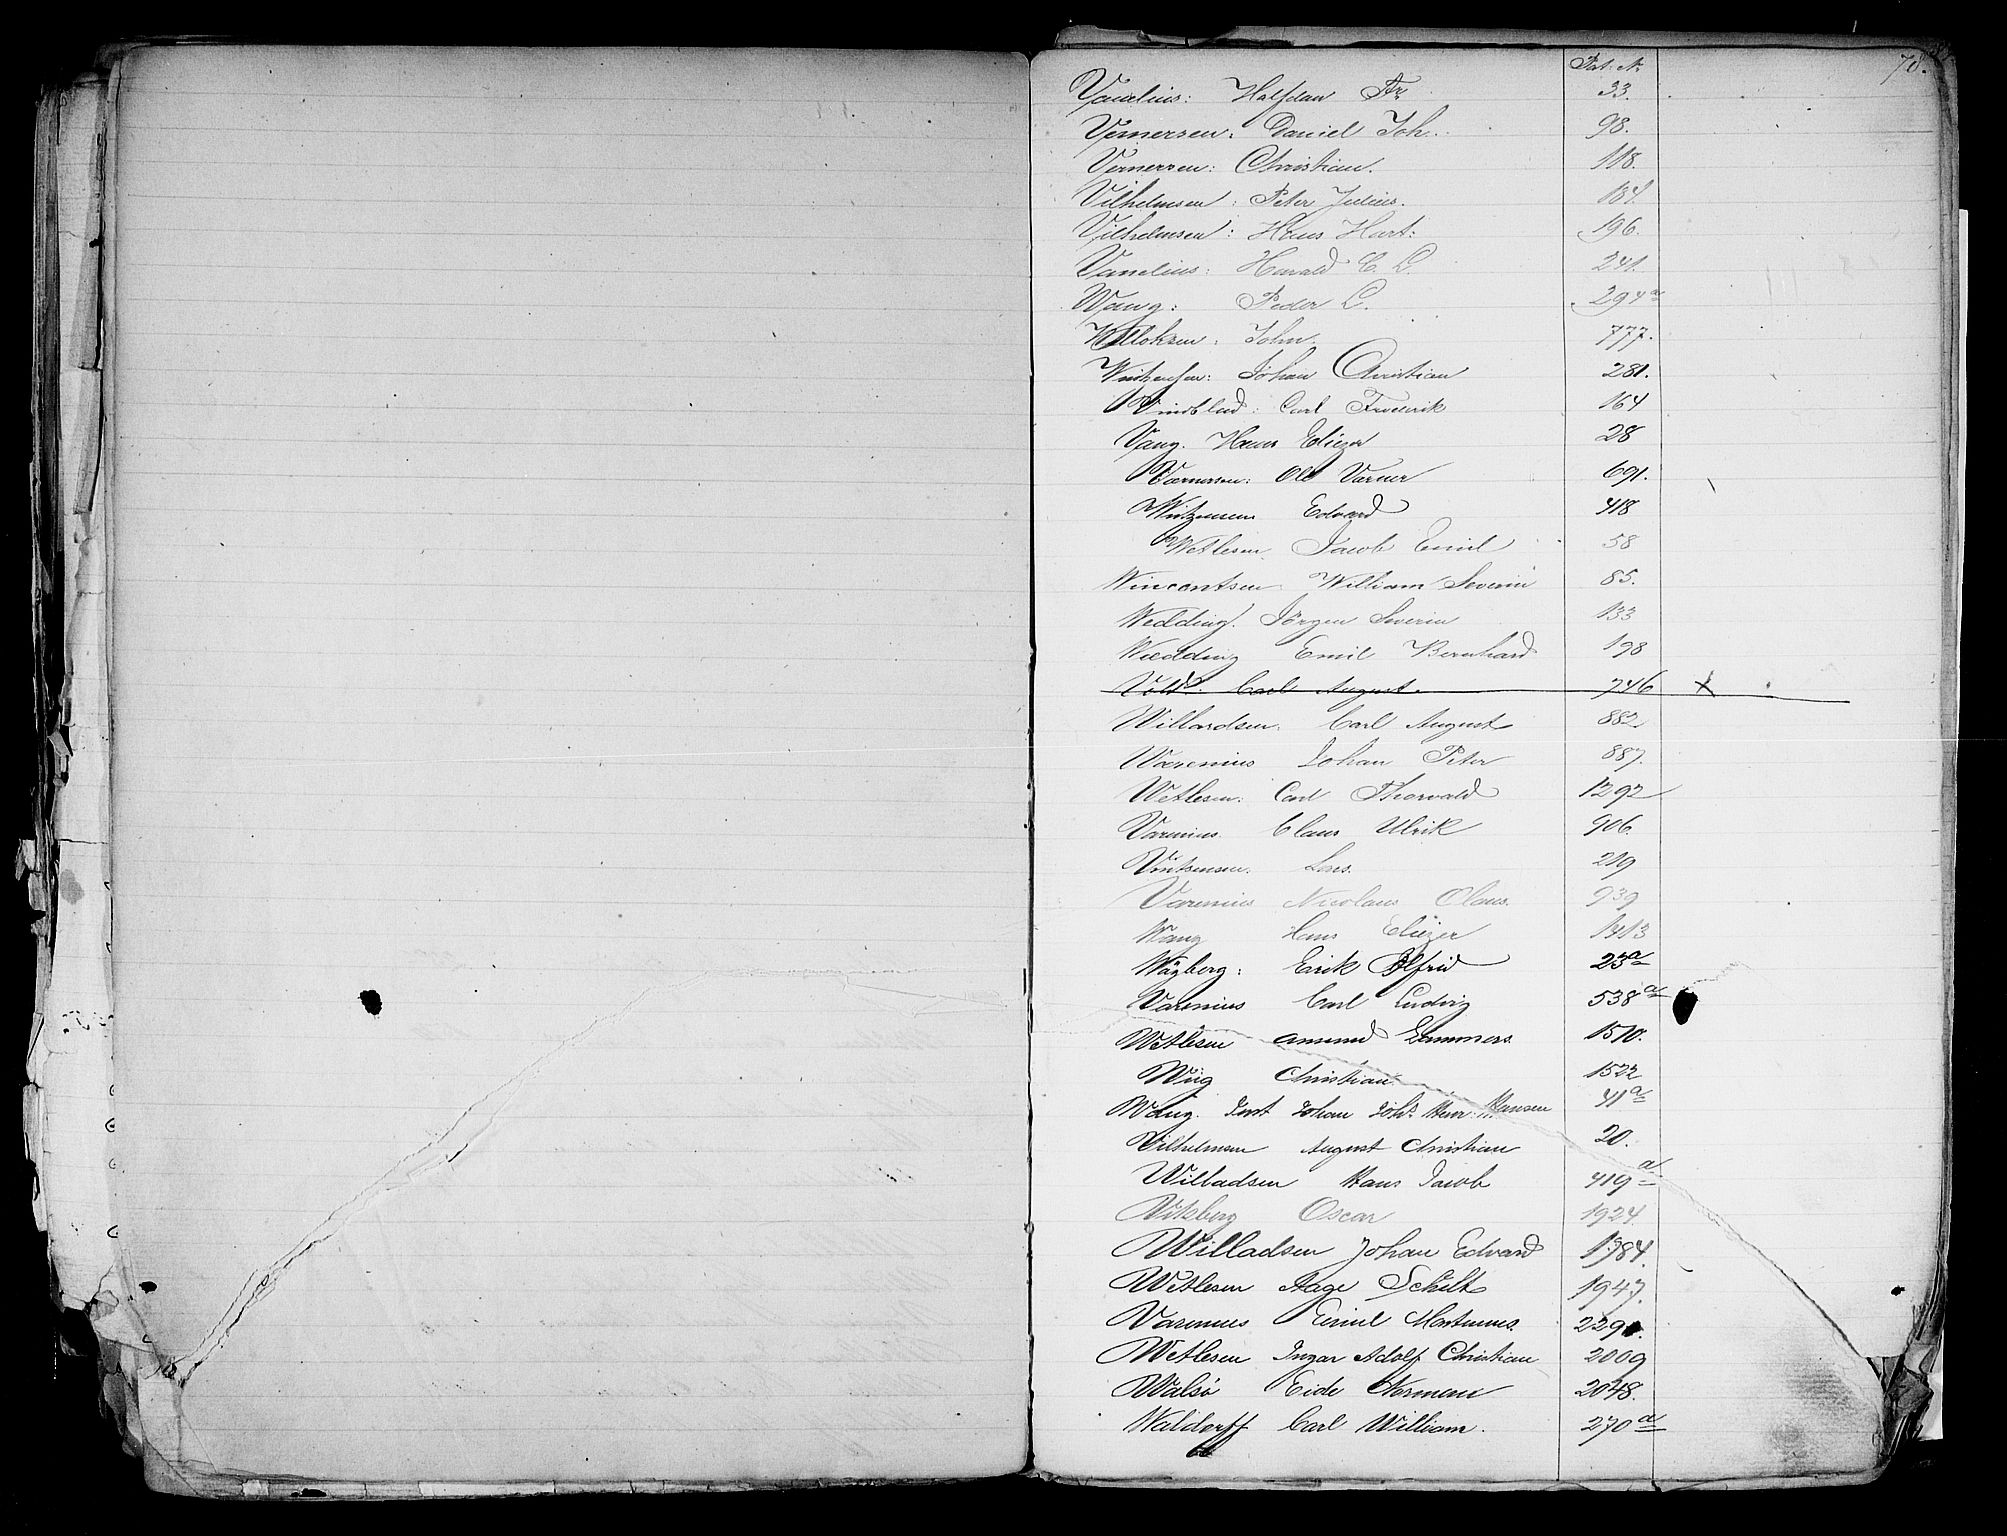 Pat. N. 78.
Vanelius: Halfdan Fr. 33.
Vernersen: Daniel Joh. 98.
Vernersen: Christian. 118.
Vilhelmsen: Peter Julius. 184.
Vilhelmsen: Hans Hart: 196.
Vanelius: Harald C. L. 241.
Wang: Peder L. 294 a
John. 777.
Wintzensen: Johan Christian 281.
Vindblad: Carl Frederik 164
Vang. Hans Eliezer 28
Værnersen: Ole Værner 691.
Wintzensen Edvard 418
Wetlesen. Jacob Emil 58
Wincentsen William Severin 85.
Wedding. Jörgen Severin 133
Wedding Emil Bernhard 198
Vold. Carl August. 746 X
Willardsen. Carl August 882
Warenius Johan Peter 887.
Wetlesen: Carl Thorvald 1292
Varenius Claus Ulrik 906.
Vintsensen. Lars. 219
Varenius Nicolaus Olaus. 939
Wang Hans Eliezer 1413
Wägberg: Erik Alfrid 23 a
Varenius Carl Ludvig 538 a
Wetlesen Amund Lammers. 1510.
Wiig Christian 1522
Wang. Jost Johan Johs. Henr. Hansen 41 a
Vilhelmsen August Christian 20.
Willadsen Hans Jacob 419 a
Vitsberg Oscar 1924.
Willadsen Johan Edvard 1784.
Wetlesen Aage Schilt 1947.
Varenius Emil Martinius. 229.
Wetlesen Ingar Adolf Christian 2009
Walsö Eide Normeni 2048.
Waldorff Carl William. 270 a